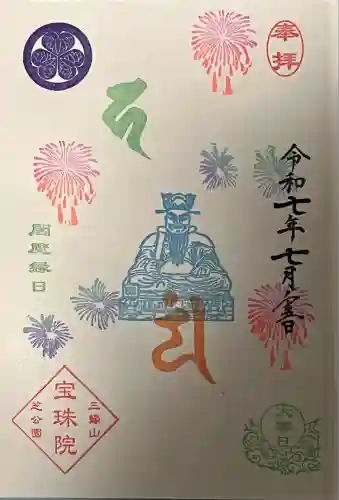 奉拝
令和七年七月
閻魔縁日
大事日
三縁山
宝珠院
芝公園